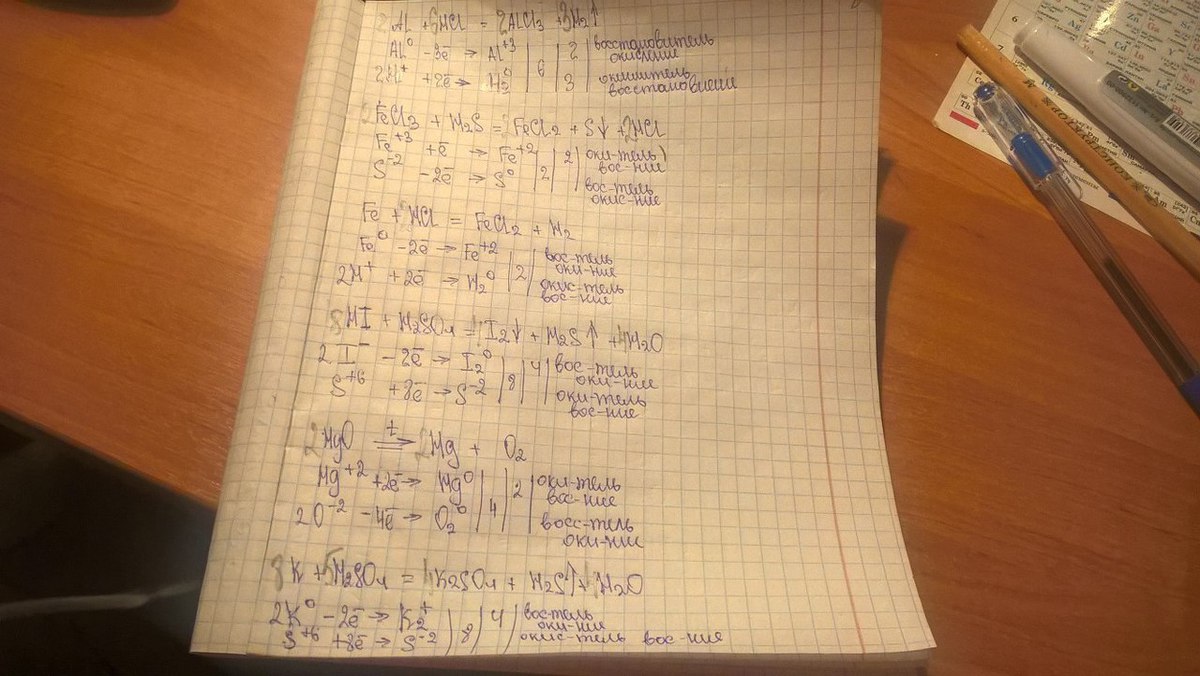 2Al + 6HCl = 2AlCl3 + 3H2↑
Al⁰ -3ē → Al⁺³ | 6 | 2 | восстановитель
окисление
2H⁺ +2ē → H2⁰ | | 3 | окислитель
восстановление
2FeCl3 + H2S = 2FeCl2 + S↓ + 2HCl
Fe⁺³ +ē → Fe⁺² | 2 | 2 | оки-тель
вос-ние
S⁻² -2ē → S⁰ | вос-тель
окис-ние
Fe + 2HCl = FeCl2 + H2
Fe⁰ -2ē → Fe⁺² | 2 | вос-тель
оки-ние
2H⁺ +2ē → H2⁰ | окис-тель
вос-ние
8HI + H2SO4 = 4I2↓ + H2S↑ + 4H2O
2I⁻ -2ē → I2⁰ | 8 | 4 | вос-тель
оки-ние
S⁺⁶ +8ē → S⁻² | оки-тель
вос-ние
2HgO t⇒ 2Hg + O2
Hg⁺² +2ē → Hg⁰ | 4 | 2 | оки-тель
вос-ние
2O⁻² -4ē → O2⁰ | восс-тель
оки-ние
8K + 5H2SO4 = 4K2SO4 + H2S↑ + 4H2O
2K⁰ -2ē → K2⁺ | 8 | 4 | вос-тель
оки-ние
S⁺⁶ +8ē → S⁻² | окис-тель вос-ние